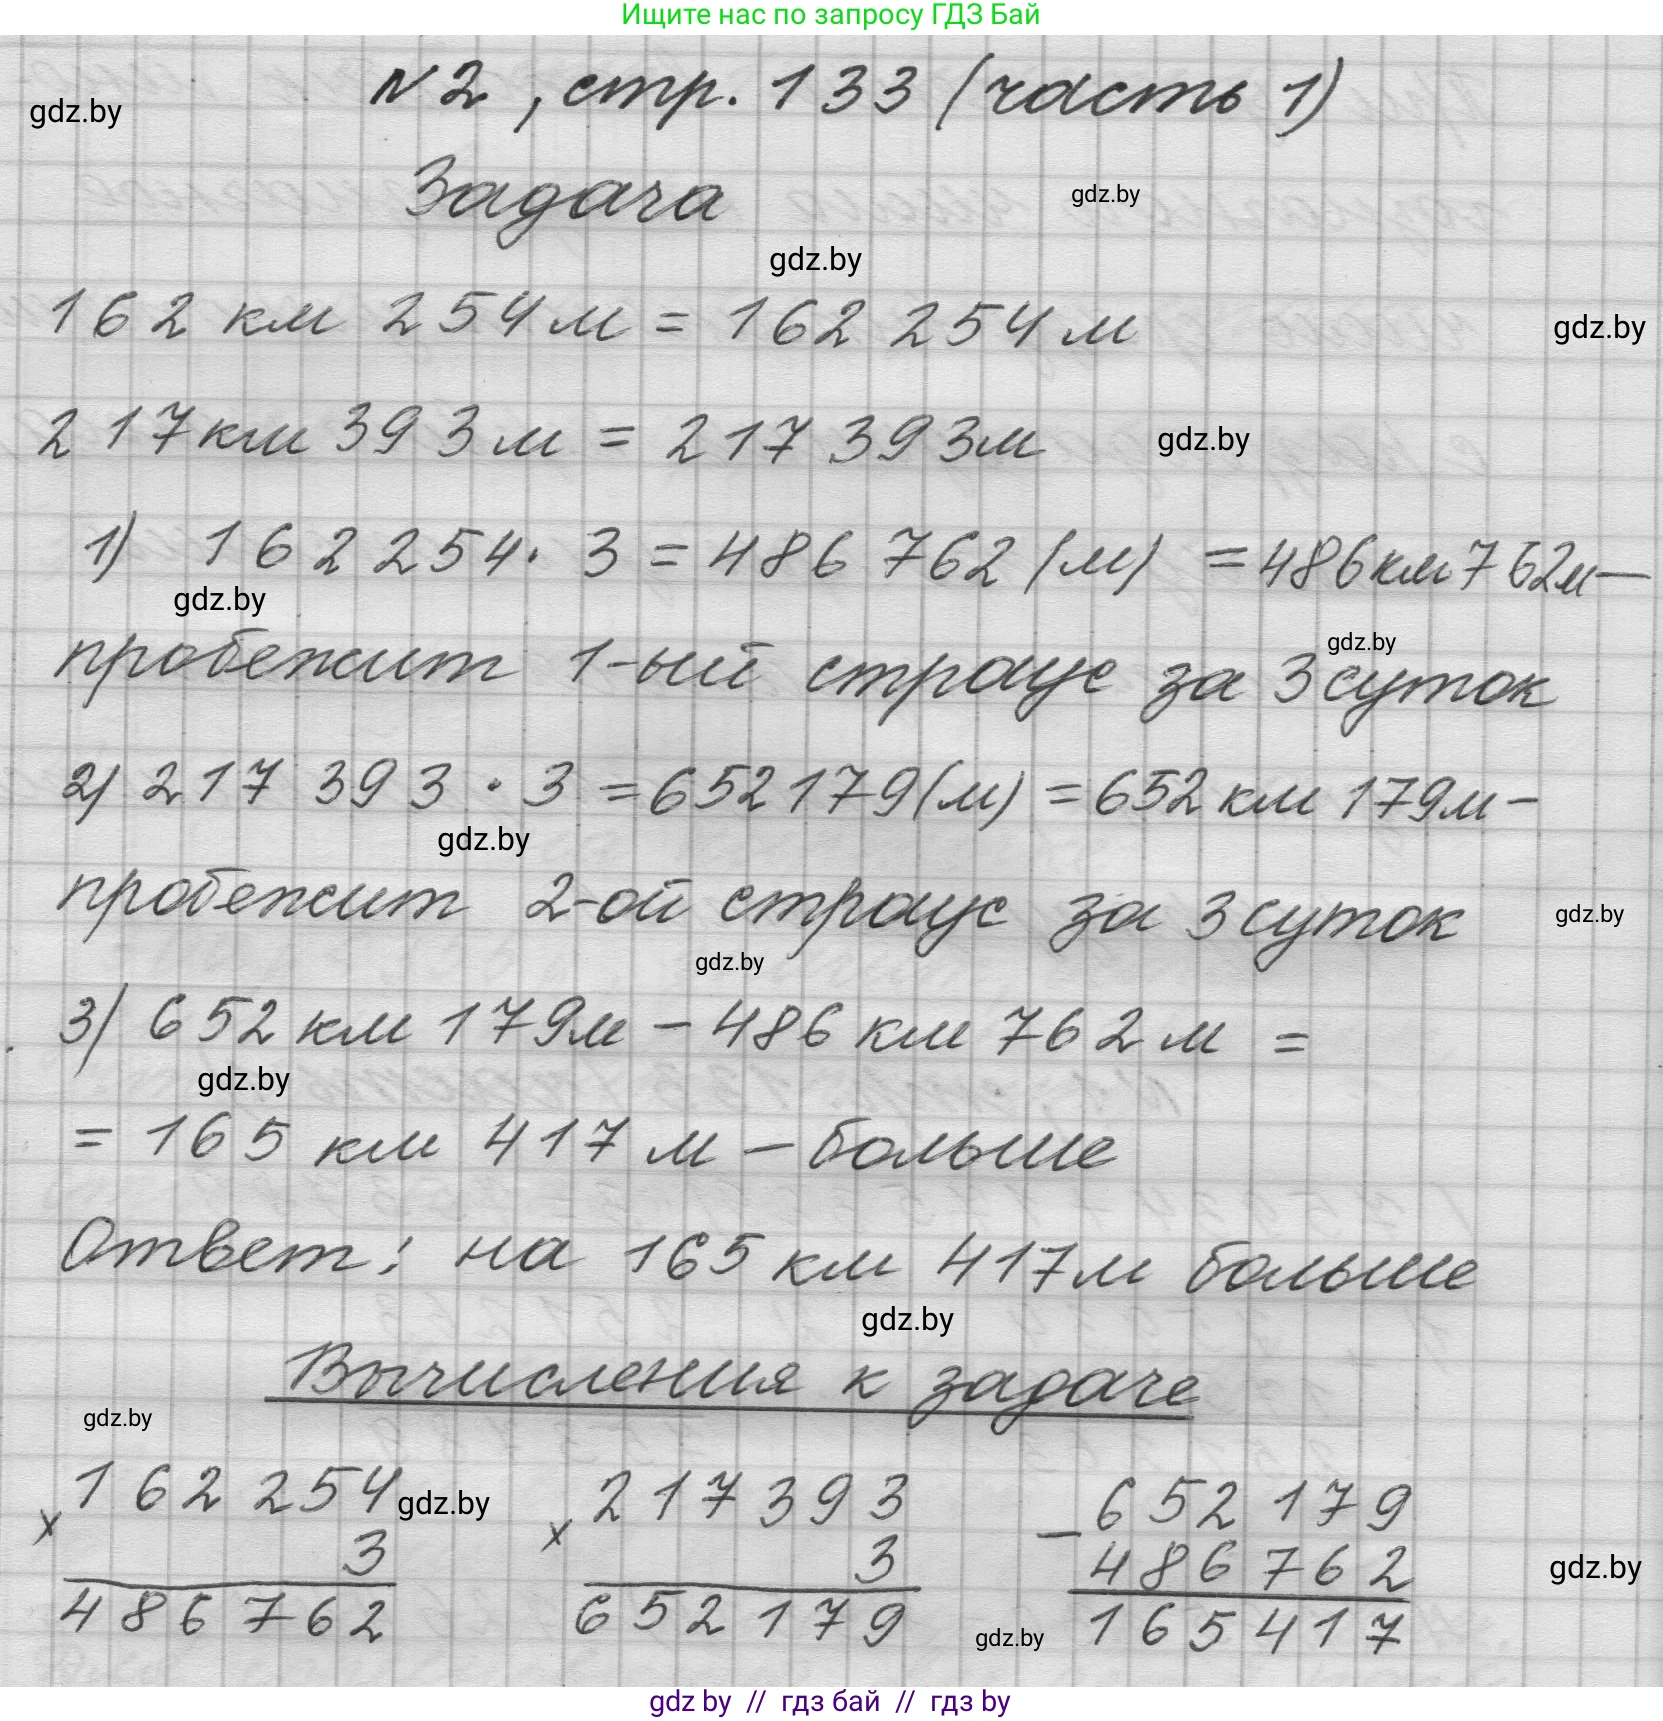 Ищите нас по запросу ГДЗ Бай
№2, стр. 133 (часть 1)
gdz.by
Задача
gdz.by
gdz.by
162 км 254 м = 162 254 м
gdz.by
217 км 393 м = 217 393 м
gdz.by
1) 162 254 · 3 = 486 762 (м) = 486 км 762 м —
gdz.by
пробежит 1-ый страус за 3 суток
gdz.by
2) 217 393 · 3 = 652 179 (м) = 652 км 179 м –
gdz.by
пробежит 2-ой страус за 3 суток
gdz.by
gdz.by
3) 652 км 179 м – 486 км 762 м =
gdz.by
= 165 км 417 м – больше
Ответ: на 165 км 417 м больше
gdz.by
Вычисления к задаче
gdz.by
162 254
gdz.by
× 3
486 762
217 393
× 3
652 179
– 652 179
486 762
gdz.by
165 417
gdz.by
gdz by // гдз бай // гдз by